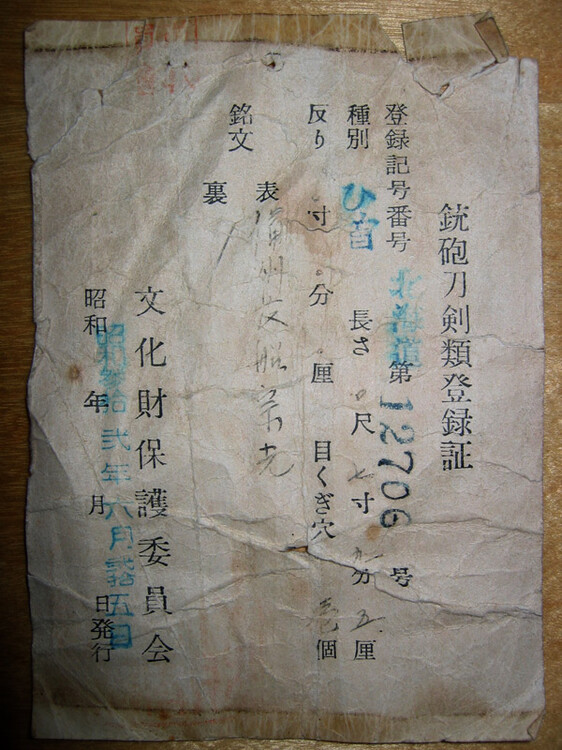 銃砲刀剣類登録証
登録記号番号 北海道 第 12706 号
種別 ひ首 長さ 〇尺 七寸 九分 五厘
反り 〇寸 〇分 〇厘 目くぎ穴 壱個
銘文 表 備州長船祭光
裏
文化財保護委員会
昭和 年 月 日発行
昭和参拾弐年六月弐拾五日